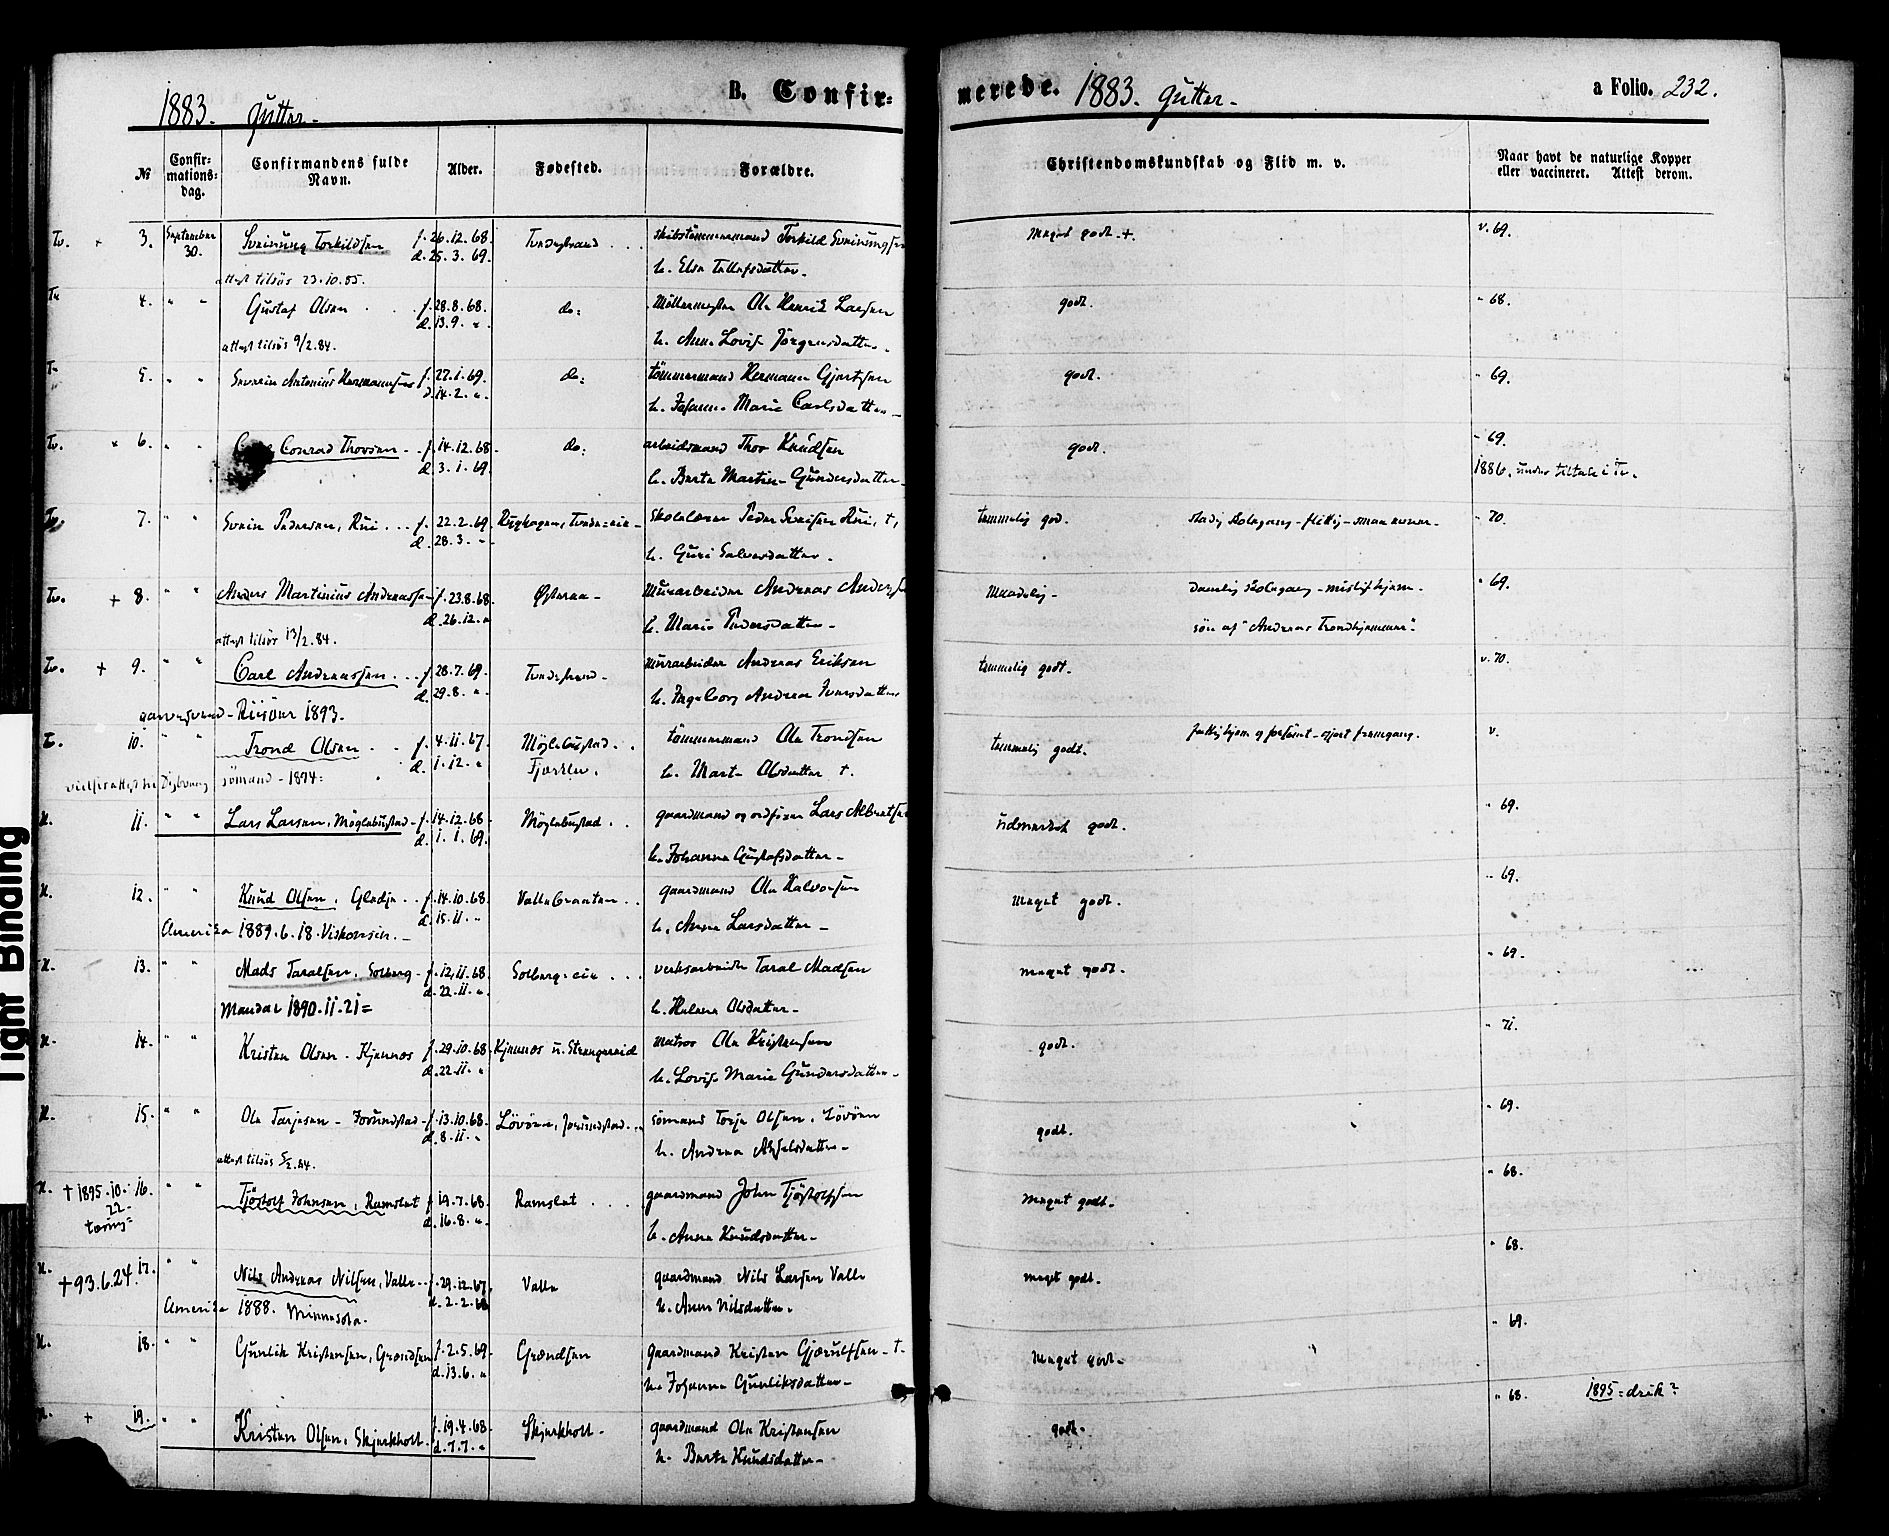 1883. Gutter.
B. Confir-
merede. 1883. Gutter.
a Folio. 232.
№
Confir-
mations-
dag.
Confirmandens fulde
Navn.
Alder.
Fødested.
Forældre.
Christendomskundskab og Flid m. v.
Naar havt de naturlige Kopper
eller vaccineret. Attest derom.
Tv. + 3. September 30. Sveinung Torkildsen f. 26.12.68. Tvedestrand skibstömmermand Torkild Sveinungsen meget godt + v. 69.
d. 25.3.69. h. Else Tellefsdatter.
attest tilsös 23.10.85.
Tv. 4. " " Gustaf Olsen f. 28.8.68. do: Möllermester Ole Henrik Larsen godt. " 68.
d. 13.9. " h. Anne Lovise Jörgensdatter.
attest tilsös 9/2.84.
Tv. 5. " " Severin Antonius Hermannsen f. 27.1.69. do: tömmermand Hermann Gjertsen godt. " 69.
d. 14.2. " h. Johanne Marie Carlsdatter
Tv. × 6. " " Conrad Thorsen f. 14.12.68. do: arbeidsmand Thor Knudsen godt. " 69.
d. 3.1.69. h. Berte Martine Gundersdatter 1886. under tiltale i Tv.
Tv. 7. " " Svein Pedersen, Rui f. 22.2.69. Tvede-eie skolelærer Peder Sveinsen Rui, †, temmelig god. stadig skolegang - flittig - smaa evner. " 70.
d. 28.3. " h. Guri Salvesdatter.
Tv. + 8. " " Anders Martinius Andreassen f. 23.8.68. Østeraa Murarbeider Andreas Anders Maadelig - daarlig skolegang - misligt hjem. " 69.
d. 26.12. " h. Marie Pedersdatter sön af "Andreas Trondhjemmer".
attest tilsös 13/2.84.
Tv. + 9. " " Carl Andreassen f. 28.7.69. Tvedestrand Murarbeider Andreas Eriksen temmelig godt. v. 70.
d. 29.8. " h. Ingeborg Andrea Iversdatter
garversvend - Risöer 1893.
T. 10. " " Trond Olsen f. 4.11.67. Möglebustad tömmermand Ole Trondsen temmelig godt. fattig hjem og forsömt - gjort fremgang. v.
d. 1.12. " Fjorden. h. Marte Olsdatter †.
sömand - 1894:
H. 11. " " Lars Larsen, Möglebustad f. 14.12.68. Möglebustad gaardmand og ordförer Lars Albretsen udmerket godt. " 69.
d. 1.1.69. h. Johanne Gustafsdatter
H. 12. " " Knud Olsen, Gledje f. 14.10.68. Vallebraaten gaardmand Ole Halvorsen meget godt. " 69.
d. 15.11. " h. Anne Larsdatter
Amerika 1889.6.18. Viskonsin.
H. 13. " " Mads Taralsen, Solberg f. 12.11.68. Solberg-eie verksarbeider Taral Madsen meget godt. " 69.
d. 22.11. " h. Helene Olsdatter
Mandal 1890.11.21=
H. 14. " " Kristen Olsen - Kjennes f. 29.10.68. Kjennes u. Strengereid matros Ole Kristensen godt. " 71.
d. 22.11. " h. Lovise Marie Gundersdatter
H. 15. " " Ole Tarjesen - Jorundstad f. 13.10.68. Lövöen, Jorundstad sömand Terje Olsen, Lövöen godt. " 69.
d. 8.11. " h. Andrea Akselsdatter
attest tilsös 5/2.84.
H. † 1895.10. 22 tæring= 16. " " Tjöstolf Johnsen, Ramslet f. 19.7.68. Ramslet gaardmand John Tjöstolfsen Meget godt. " 68.
d. 16.8. " h. Anne Knudsdatter
H. † 93.6.24. 17. " " Nils Andreas Nilsen, Valle f. 29.12.67. Valle gaardmand Nils Larsen Valle meget godt. " 68.
d. 2.2.68. h. Anne Nilsdatter.
Amerika 1888. Minnesota.
H. 18. " " Gunlik Kristensen, Grændsen f. 2.5.69. Grændsen gaardmand Kristen Gjerulfsen † Meget godt " 69.
d. 13.6. " h. Johanne Gunliksdatter
H. + 19. " " Kristen Olsen, Skjerkholt f. 19.4.68. Skjerkholt gaardmand Ole Kristensen godt. " 68. 1895 = druk?
d. 7.7. " h. Berte Knudsdatter
Tight Binding